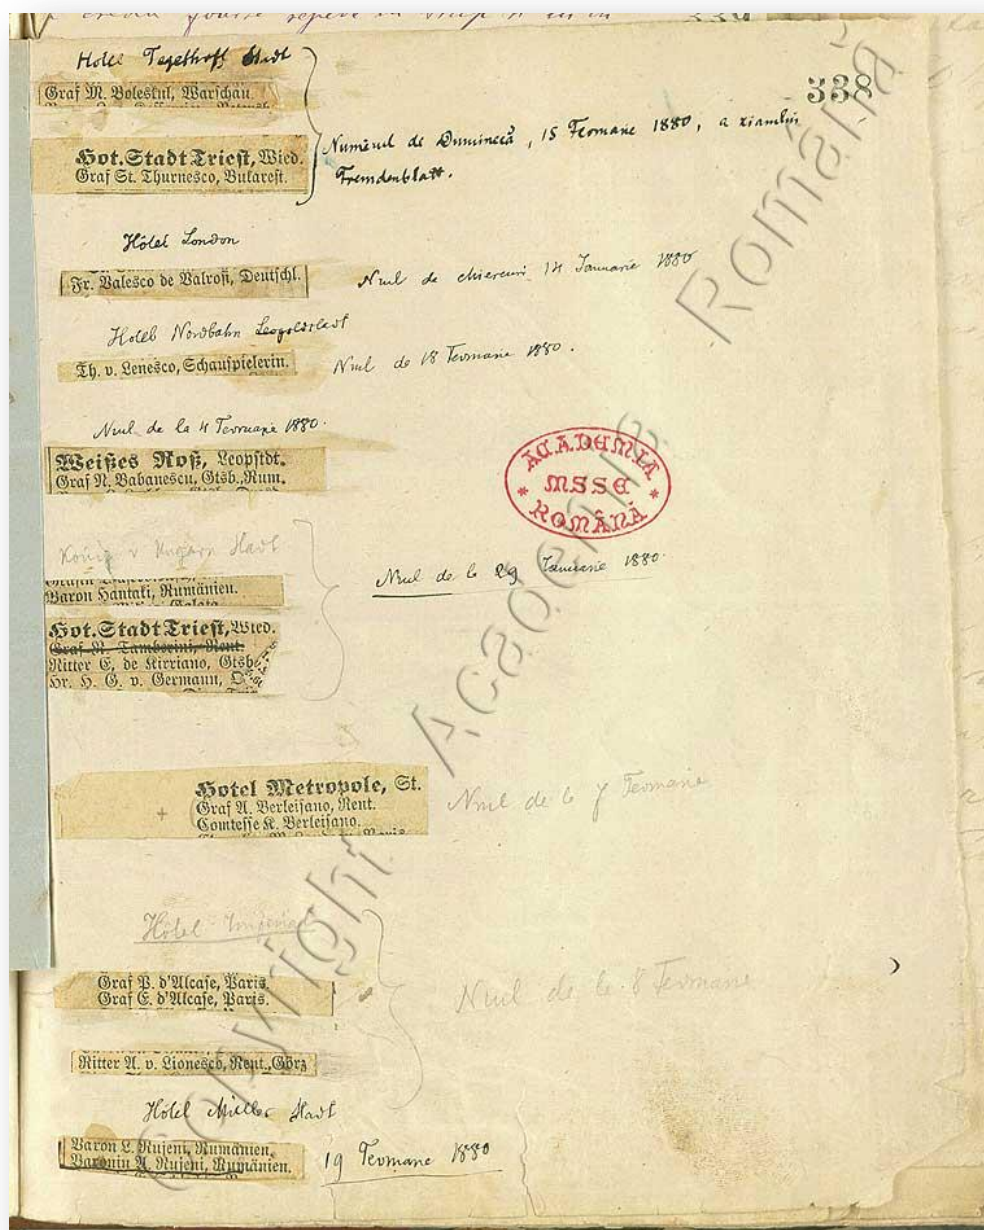 338
Hotel Tegethoff Stadt
Graf M. Bolestul, Warschau.
Hot. Stadt Triest, Wied.
Graf St. Thurnesco, Bukarest.
Numĕrul de Duminecă, 15 Fevruarie 1880, a ziarului
Fremdenblatt.
Hôtel London
Fr. Valesco de Valrosi, Deutschl.
Nrul de Miercuri 14 Ianuarie 1880
Hotel Nordbahn Leopoldstadt
Th. v. Lenesco, Schauspielerin.
Nrul de 18 Fevruarie 1880.
Nrul de la 4 Fevruarie 1880.
Weißes Roß, Leopstdt.
Graf N. Babanescu, Gtsb., Rum.
ACADEMIA
MSSE
ROMÂNĂ
König v Ungarn Stadt
Baron Hantaki, Rumänien.
Nrul de la 29 Ianuarie 1880.
Hot. Stadt Triest, Wied.
Graf R. Tamberini, Rent.
Ritter E. de Kirriano, Gtsb.
Hr. H. G. v. Germann,
Hotel Metropole, St.
Graf A. Verleisano, Rent.
Comtesse K. Verleisano.
Nrul de la 7 Fevruarie
Hôtel Imperial
Graf P. d'Alcase, Paris.
Graf E. d'Alcase, Paris.
Nrul de la 8 Fevruarie
Ritter A. v. Lionesco, Rent., Görz
Hôtel Müller Stadt
Baron L. Rujeni, Rumänien.
Baronin A. Rujeni, Rumänien.
19 Fevruarie 1880
Copyright Academia Română